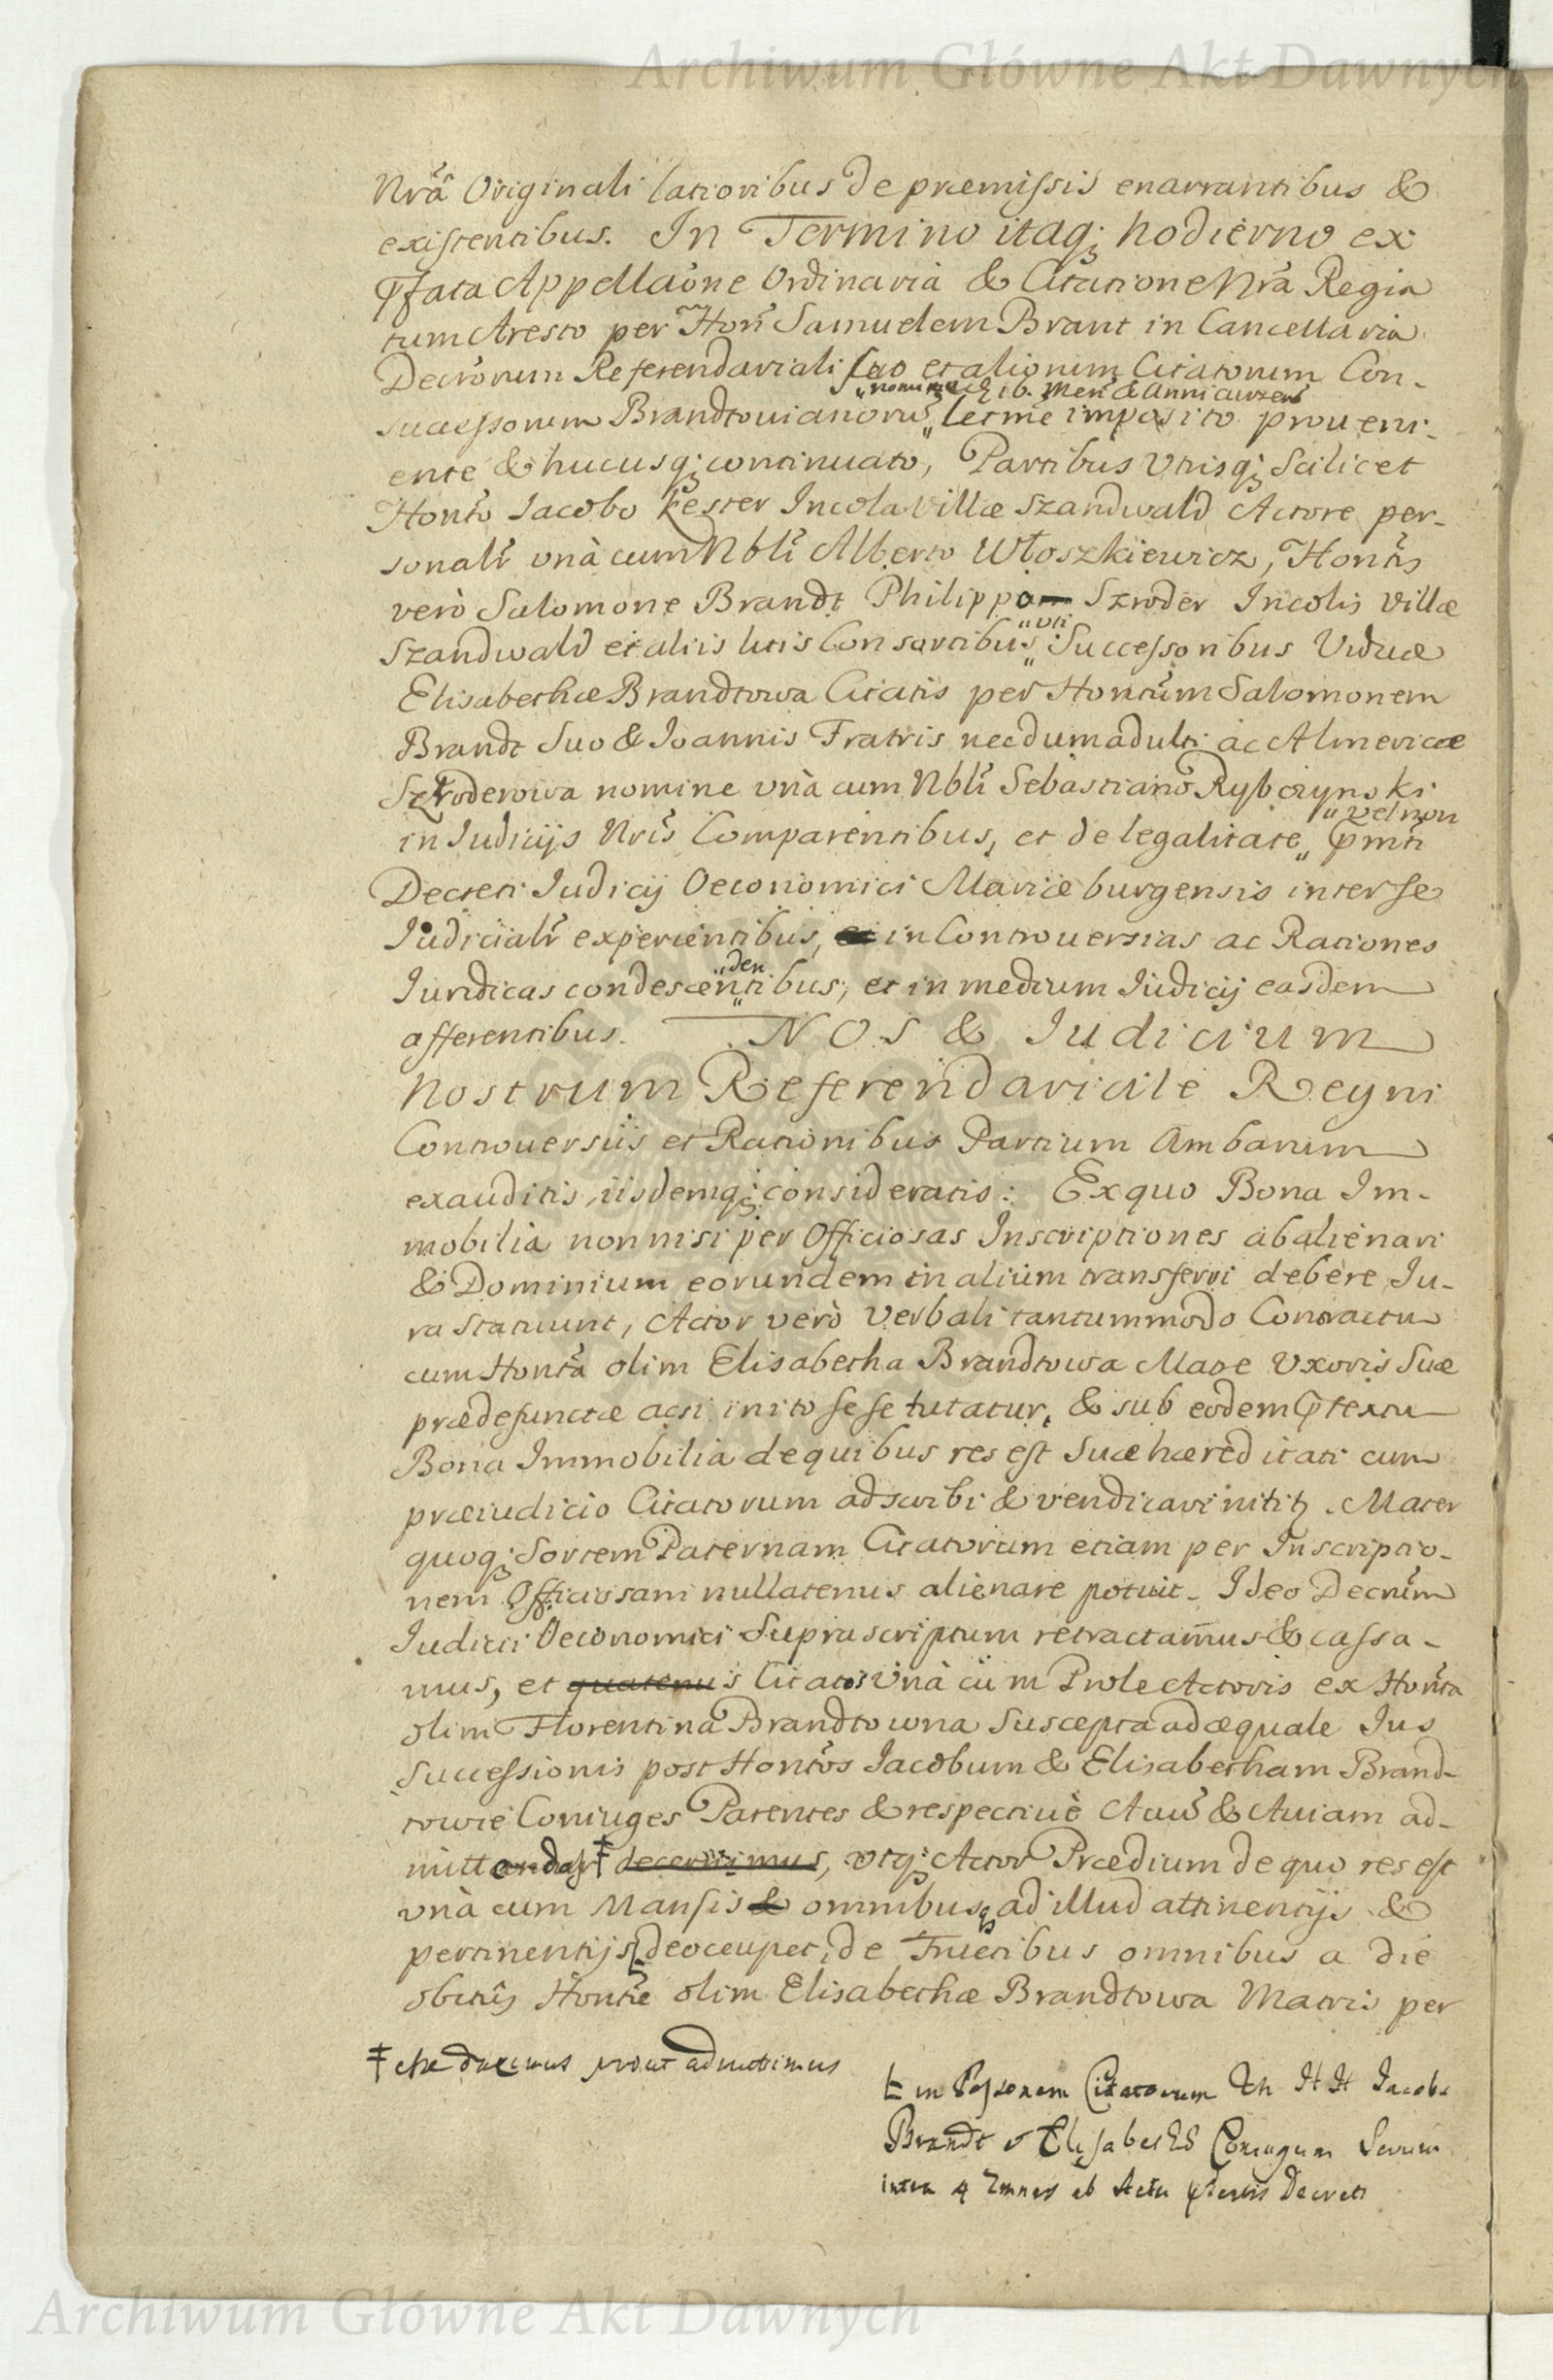 Archiwum Główne Akt Dawnych
Nr̃a Originali latioribus de præmissis enarrantibus &
existentibus. In Termino itaq; hodierno ex
p̃fata Appella͠one Ordinaria & Citatione Nr̃a Regia
tum Aresto per Hon̄ Samuelem Brant in Cancellaria
Decr̃orum Referendariali suo et aliorum Citatorum Con-
"nomine 16. Men̄ & Anni curren̄
sucessorum Brandtovianorũ " imposito proveni-
ente & hucusq; continuato, Partibus Utrisq; Scilicet
Honto Jacobo Kester Incola villæ Szandwald Actore per-
sonalr̃ unà cum Nbli Alberto Włoszkiewicz, Hontis
verò Salomone Brandt Philippo Szroder Incolis villæ
"uti
Szandwald et aliis litis Consortibus " Successoribus Viduæ
Elisabethæ Brandtowa Citatis per Hontum Salomonem
Brandt Suo & Joannis Fratris necdum adulti ac Almericæ
Szroderowa nomine unà cum Nbli Sebastiano Rybczynski
"vel non
in Judicijs Nris Comparentibus, et de legalitate " p̃mti
Decreti Judicij Oeconomici Mariæburgensis inter se
Judicialr̃ experientibus, et in Controversias ac Rationes
"den
Juridicas condescentibus, et in medium Judicij easdem
afferentibus. NOS & Judicium
Nostrum Referendariale Regni
Controversiis et Rationibus Partium Ambarum
exauditis, iisdemq; consideratis: Exquo Bona Im-
mobilia non nisi per Officiosas Inscriptiones abalienari
& Dominium eorundem in alium transferri debere Ju-
ra statuunt, Actor verò Verbali tantummodo Contractu
cum Hontâ olim Elisabetha Brandtowa Matre Uxoris Suæ
prædefunctæ acsi inito sese tutatur, & sub eodem p̃textu
Bona Immobilia de quibus res est Suæ hæreditati cum
præiudicio Citatorum adscribi & vendicari nititr. Mater
quoq; Sortem Paternam Citatorum etiam per Inscriptio-
nem Officiosam nullatenus alienare potuit. Ideo Decrum
Judicii Oeconomici Supra scriptum retractamus & cassa-
mus, et quatenus Citatos Unà cùm Prole Actoris ex Hontâ
olim Florentina Brandtowna Suscepta ad æquale Jus
Successionis post Hontos Jacobum & Elisabetham Brand-
towie Coniuges Parentes & respectivè Avũ & Aviam ad-
mittendos ‡ decernimus, utq; Actor Prædium de quo res est
unà cum Mansis & omnibusq; ad illud attinentijs &
pertinentijs deoccupet, de Fructibus omnibus a die
obitûs Hontæ olim Elisabethæ Brandtowa Matris per
‡ esse ducimus prout admittimus
in Personam Citatorum H H Jacobi
Brandt & Elisabeth Coniugum
intra 4 ab Actu p̃sentis Decreti
Archiwum Główne Akt Dawnych